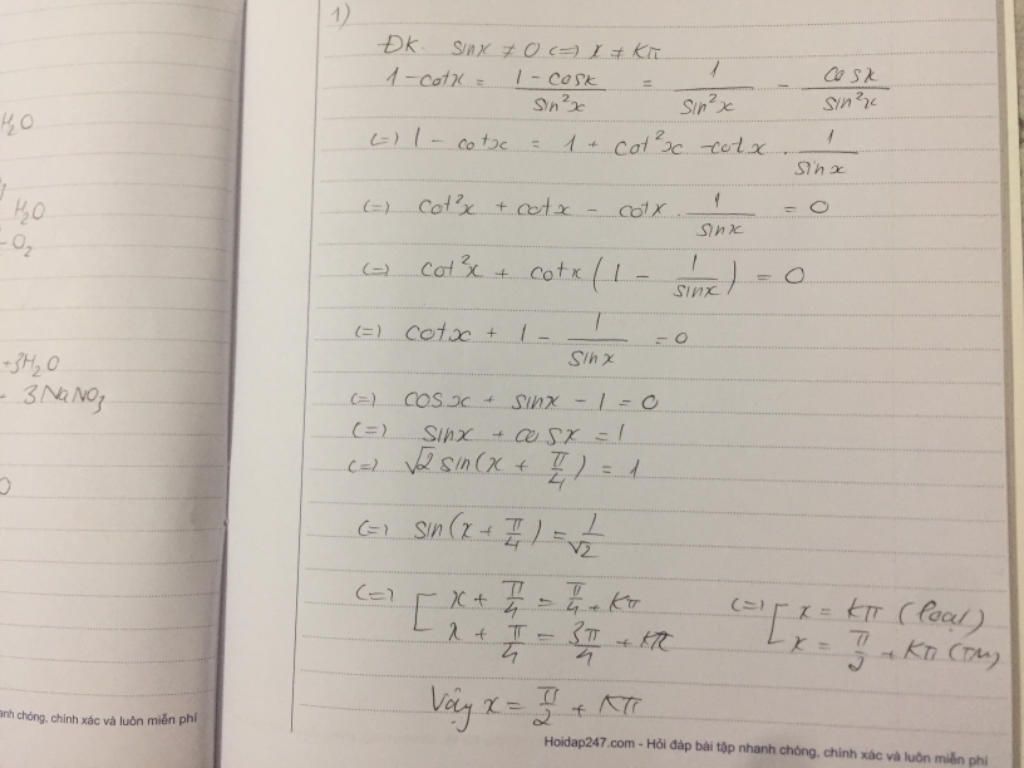 H₂O
H₂O
- O₂
+3H₂O
- 3NaNO₃
O
anh chóng, chính xác và luôn miễn phí
1)
ĐK. sinx ≠ 0 (=) x ≠ Kπ
1-cotx = (1 - cosx)/(sin²x) = 1/(sin²x) - cosx/(sin²x)
(=) 1 - cotx = 1 + cot²x - cotx . 1/(sinx)
(=) cot²x + cotx - cotx . 1/(sinx) = 0
(=) cot²x + cotx (1 - 1/(sinx)) = 0
(=) cotx + 1 - 1/(sinx) = 0
(=) cosx + sinx - 1 = 0
(=) sinx + cosx = 1
(=) √2 sin(x + π/4) = 1
(=) sin(x + π/4) = 1/√2
(=) [ x + π/4 = π/4 + Kπ (=) [ x = Kπ (loại)
x + π/4 = 3π/4 + Kπ x = π/2 + Kπ (TM)
Vậy x = π/2 + Kπ
Hoidap247.com - Hỏi đáp bài tập nhanh chóng, chính xác và luôn miễn phí